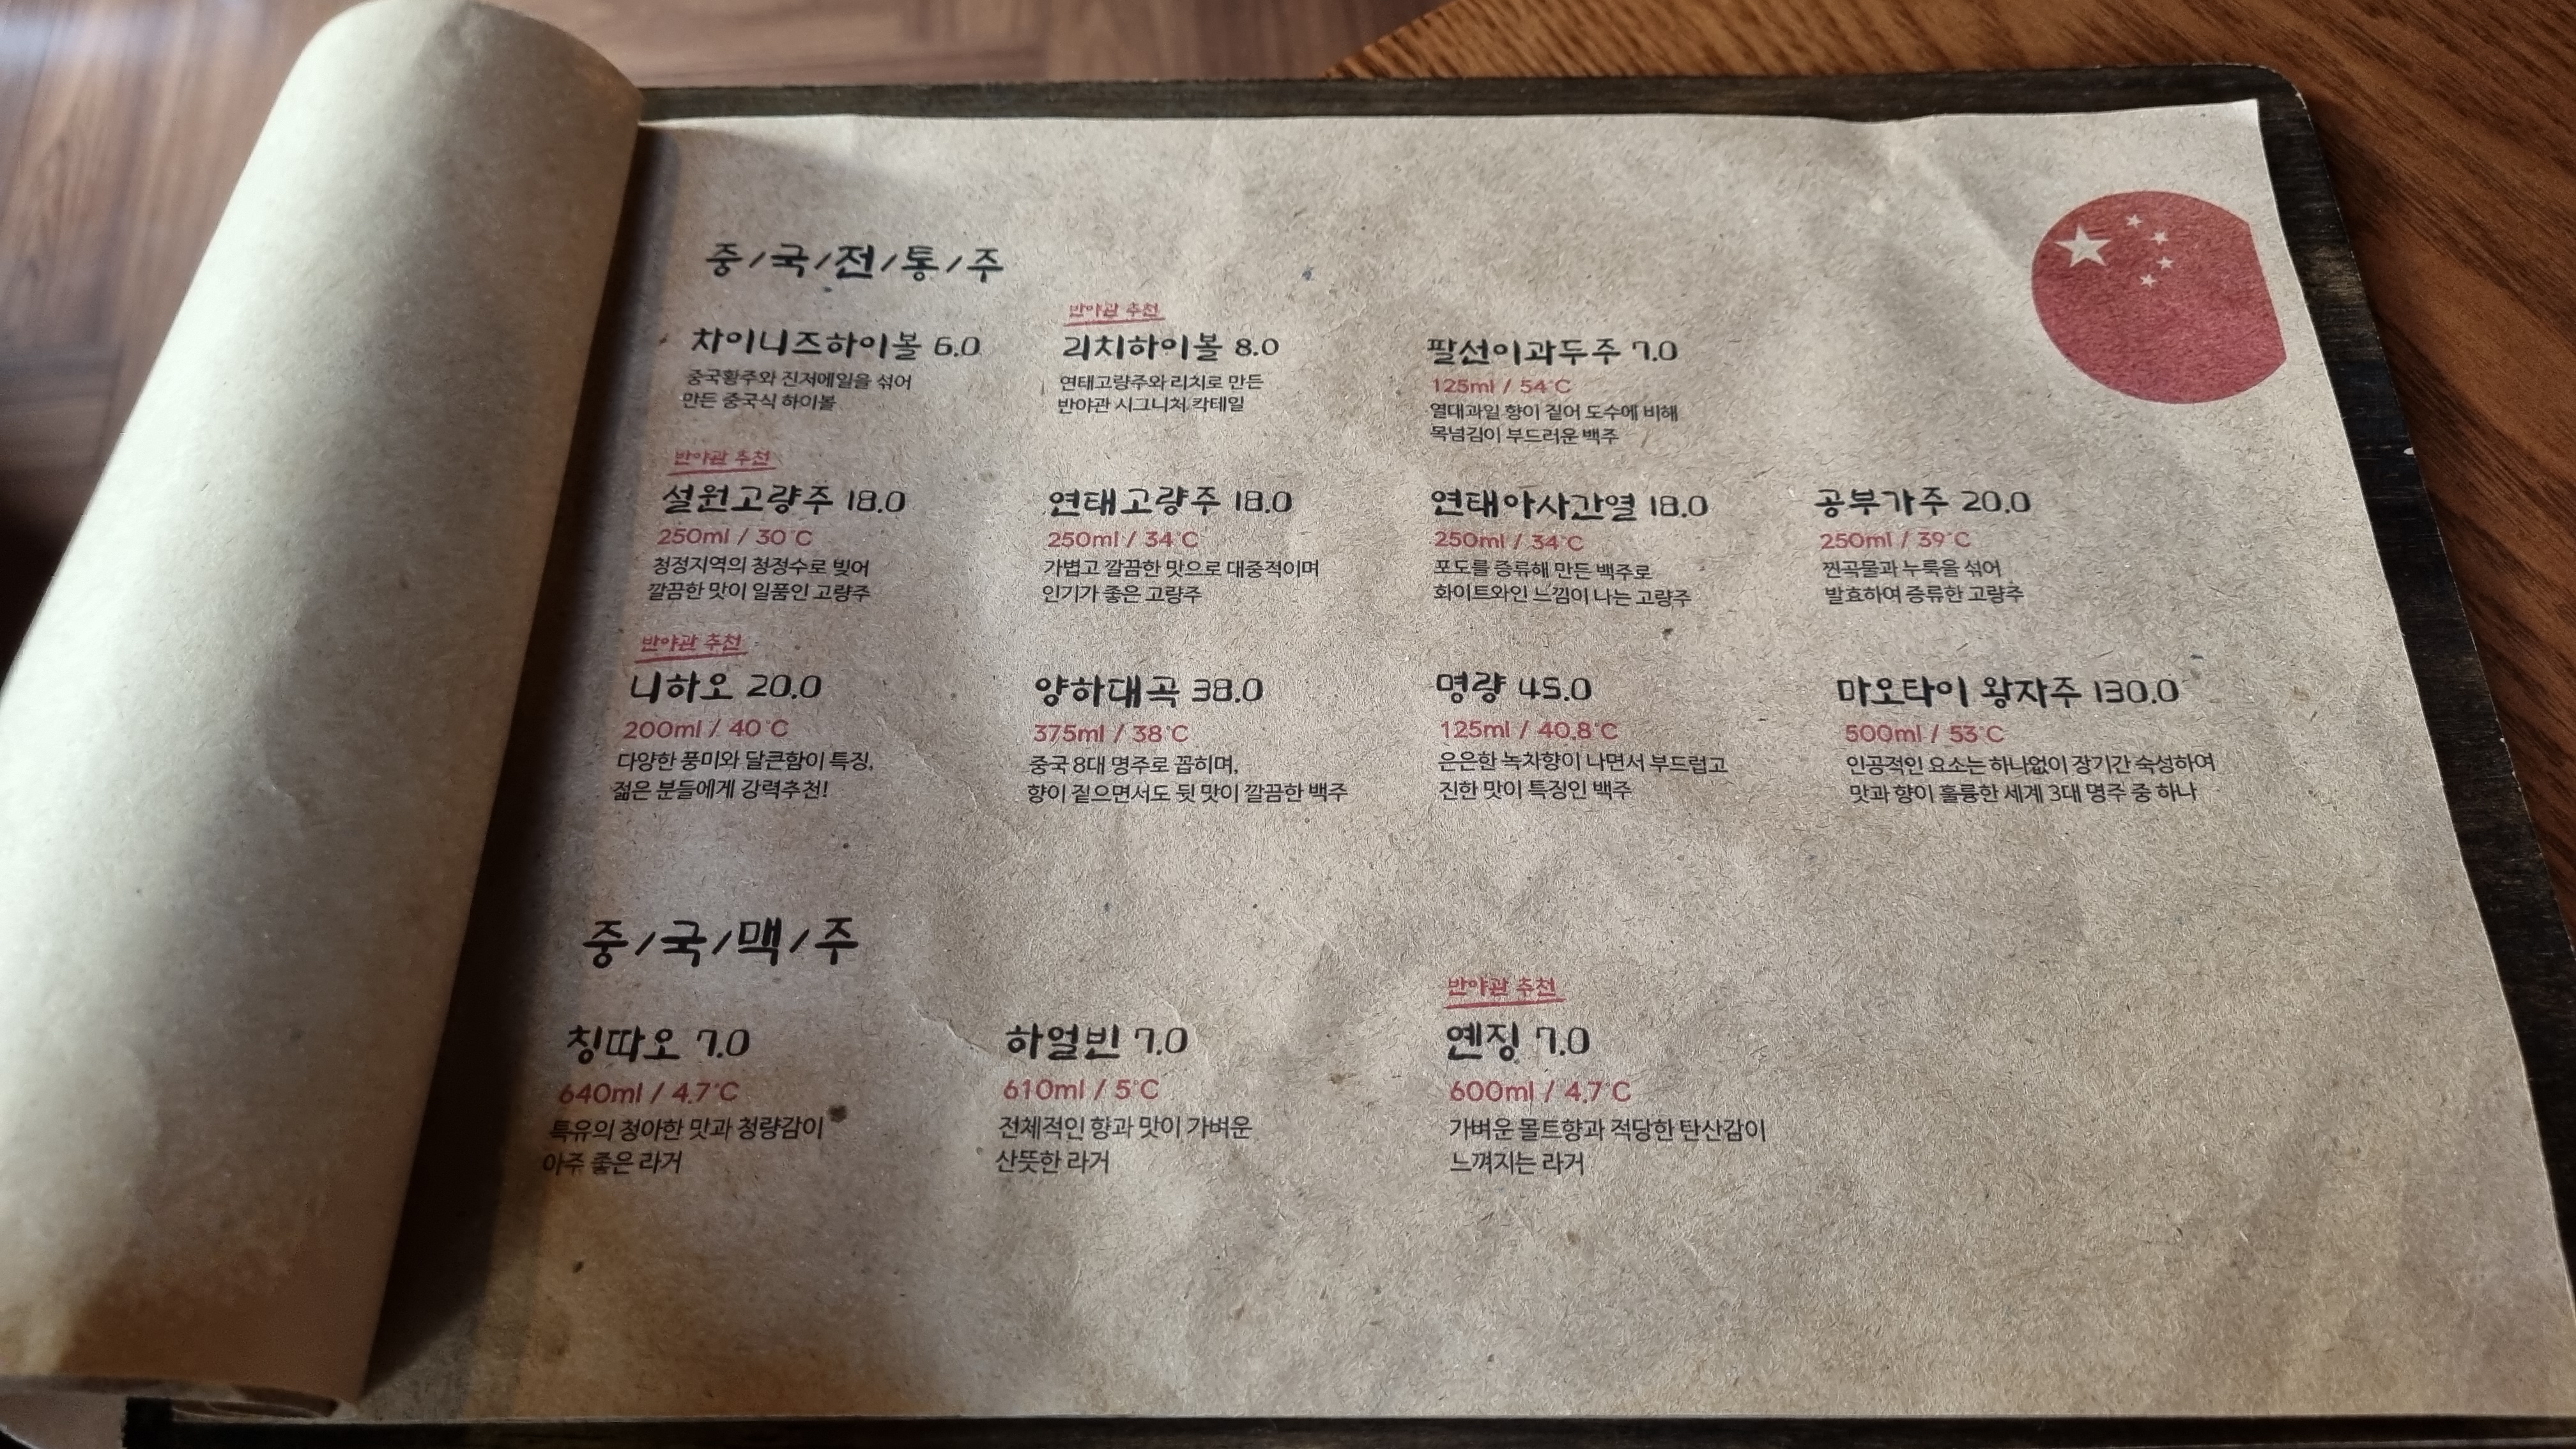 중/국/전/통/주
차이니즈하이볼 6.0
중국황주와 진저에일을 섞어
만든 중국식 하이볼
반야관 추천
리치하이볼 8.0
연태고량주와 리치로 만든
반야관 시그니처 칵테일
팔선이과두주 7.0
125ml / 54°C
열대과일 향이 짙어 도수에 비해
목넘김이 부드러운 백주
반야관 추천
설원고량주 18.0
250ml / 30°C
청정지역의 청정수로 빚어
깔끔한 맛이 일품인 고량주
연태고량주 18.0
250ml / 34°C
가볍고 깔끔한 맛으로 대중적이며
인기가 좋은 고량주
연태아사간열 18.0
250ml / 34°C
포도를 증류해 만든 백주로
화이트와인 느낌이 나는 고량주
공부가주 20.0
250ml / 39°C
찐곡물과 누룩을 섞어
발효하여 증류한 고량주
반야관 추천
니하오 20.0
200ml / 40°C
다양한 풍미와 달큰함이 특징,
젊은 분들에게 강력추천!
양하대곡 38.0
375ml / 38°C
중국 8대 명주로 꼽히며,
향이 짙으면서도 뒷 맛이 깔끔한 백주
명량 45.0
125ml / 40.8°C
은은한 녹차향이 나면서 부드럽고
진한 맛이 특징인 백주
마오타이 왕자주 130.0
500ml / 53°C
인공적인 요소는 하나없이 장기간 숙성하여
맛과 향이 훌륭한 세계 3대 명주 중 하나
중/국/맥/주
칭따오 7.0
640ml / 4.7°C
특유의 청아한 맛과 청량감이
아주 좋은 라거
하얼빈 7.0
610ml / 5°C
전체적인 향과 맛이 가벼운
산뜻한 라거
반야관 추천
옌징 7.0
600ml / 4.7°C
가벼운 몰트향과 적당한 탄산감이
느껴지는 라거